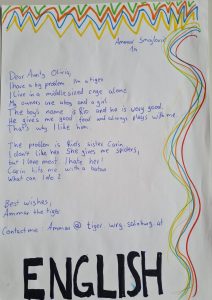 Ammar Smajlović
1a
Dear Aunty Olivia,
I have a big problem. I'm a tiger.
I live in a middle sized cage alone.
My owners are a boy and a girl.
The boy's name is Rio and he is very good.
He gives me good food and always plays with me.
That's why I like him.
The problem is Rio's sister Carin
I don't like her. She gives me spiders,
but I love meat. I hate her!
Carin hits me with a baton
What can I do?
Best wishes,
Ammar the tiger
Contact me: Ammar @ tiger wrg salzburg.at
ENGLISH